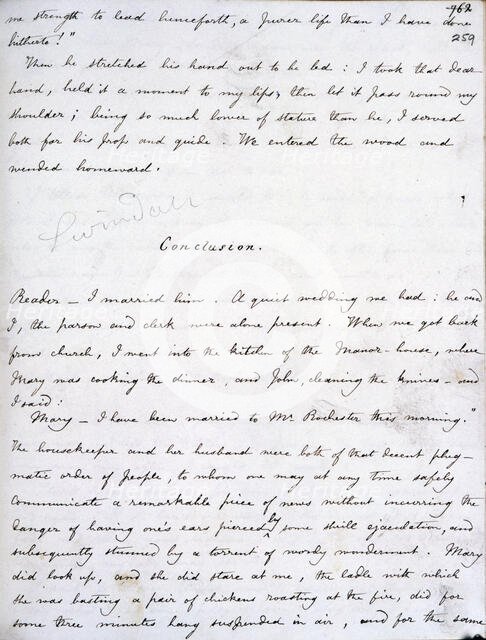 962
me strength to lead henceforth, a purer life than I have done
259
hitherto!"
Then he stretched his hand out to be led: I took that dear
hand, held it a moment to my lips, then let it pass round my
shoulder; being so much lower of stature than he, I served
both for his prop and guide. We entered the wood and
wended homeward.
Swindall
Conclusion.
Reader — I married him. A quiet wedding we had: he and
I, the parson and clerk were alone present. When we got back
from church, I went into the kitchen of the Manor-house, where
Mary was cooking the dinner, and John, cleaning the knives — and
I said:
Mary — I have been married to Mr Rochester this morning."
The housekeeper and her husband were both of that decent phleg-
matic order of people, to whom one may at any time safely
communicate a remarkable piece of news without incurring the
danger of having one's ears pierced by some shrill ejaculation, and
subsequently stunned by a torrent of wordy wonderment. Mary
did look up, and she did stare at me, the ladle with which
she was basting a pair of chickens roasting at the fire, did for
some three minutes hang suspended in air, and for the same